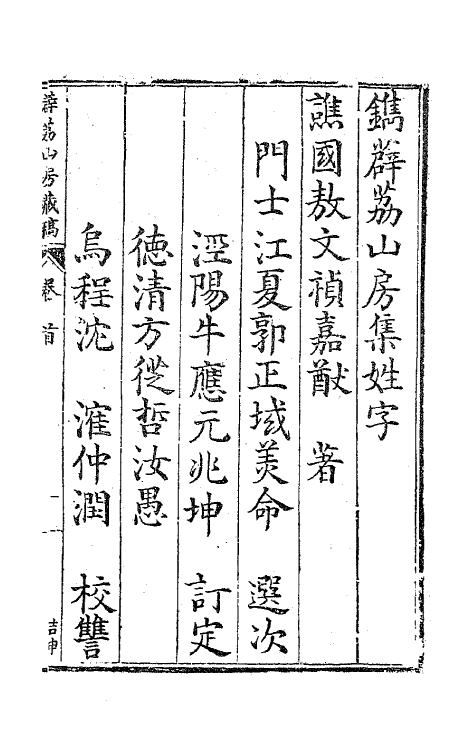 鐫薜荔山房集姓字
譙國敖文禎嘉猷　著
門士江夏郭正域美命　選次
涇陽牛應元兆坤　訂定
德清方從哲汝愚
烏程沈　漼仲潤　校讐
薜荔山房藏稿　卷首　一　吉申